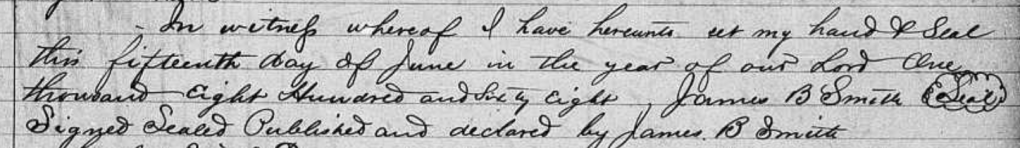 In witness whereof I have hereunto set my hand & Seal
this fifteenth day of June in the year of our Lord One
thousand Eight Hundred and Sixty Eight James B Smith (Seal)
Signed Sealed Published and declared by James. B Smith